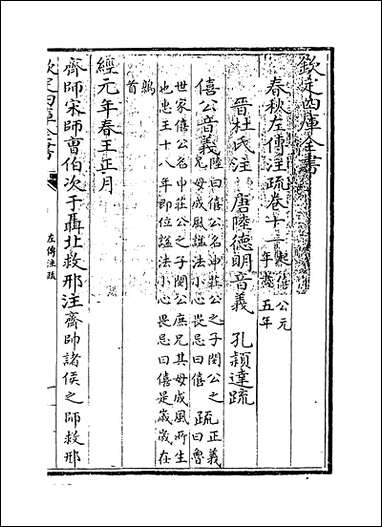 欽定四庫全書
春秋左傳注疏卷十一 起僖公元年盡五年
晉杜氏注 唐陸德明音義 孔穎達疏
僖公音義 陸曰僖公名申莊公之子閔公之
兄母成風諡法小心畏忌曰僖 疏 正義曰魯
世家僖公名申莊公之子閔公庶兄其母成風所生
也惠王十八年即位諡法小心畏忌曰僖是歲歲在
鶉首
經元年春王正月
齊師宋師曹伯次于聶北救邢注齊帥諸侯之師救邢
欽定四庫全書
左傳注疏